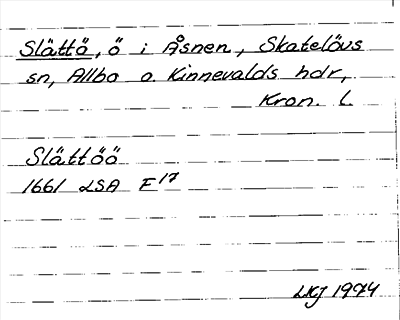 Slättö, ö i Åsnen, Skatelövs
sn, Allbo o. Kinnevalds hdr,
Kron. L.
Slättöö
1661 LSA F17
LKJ 1974